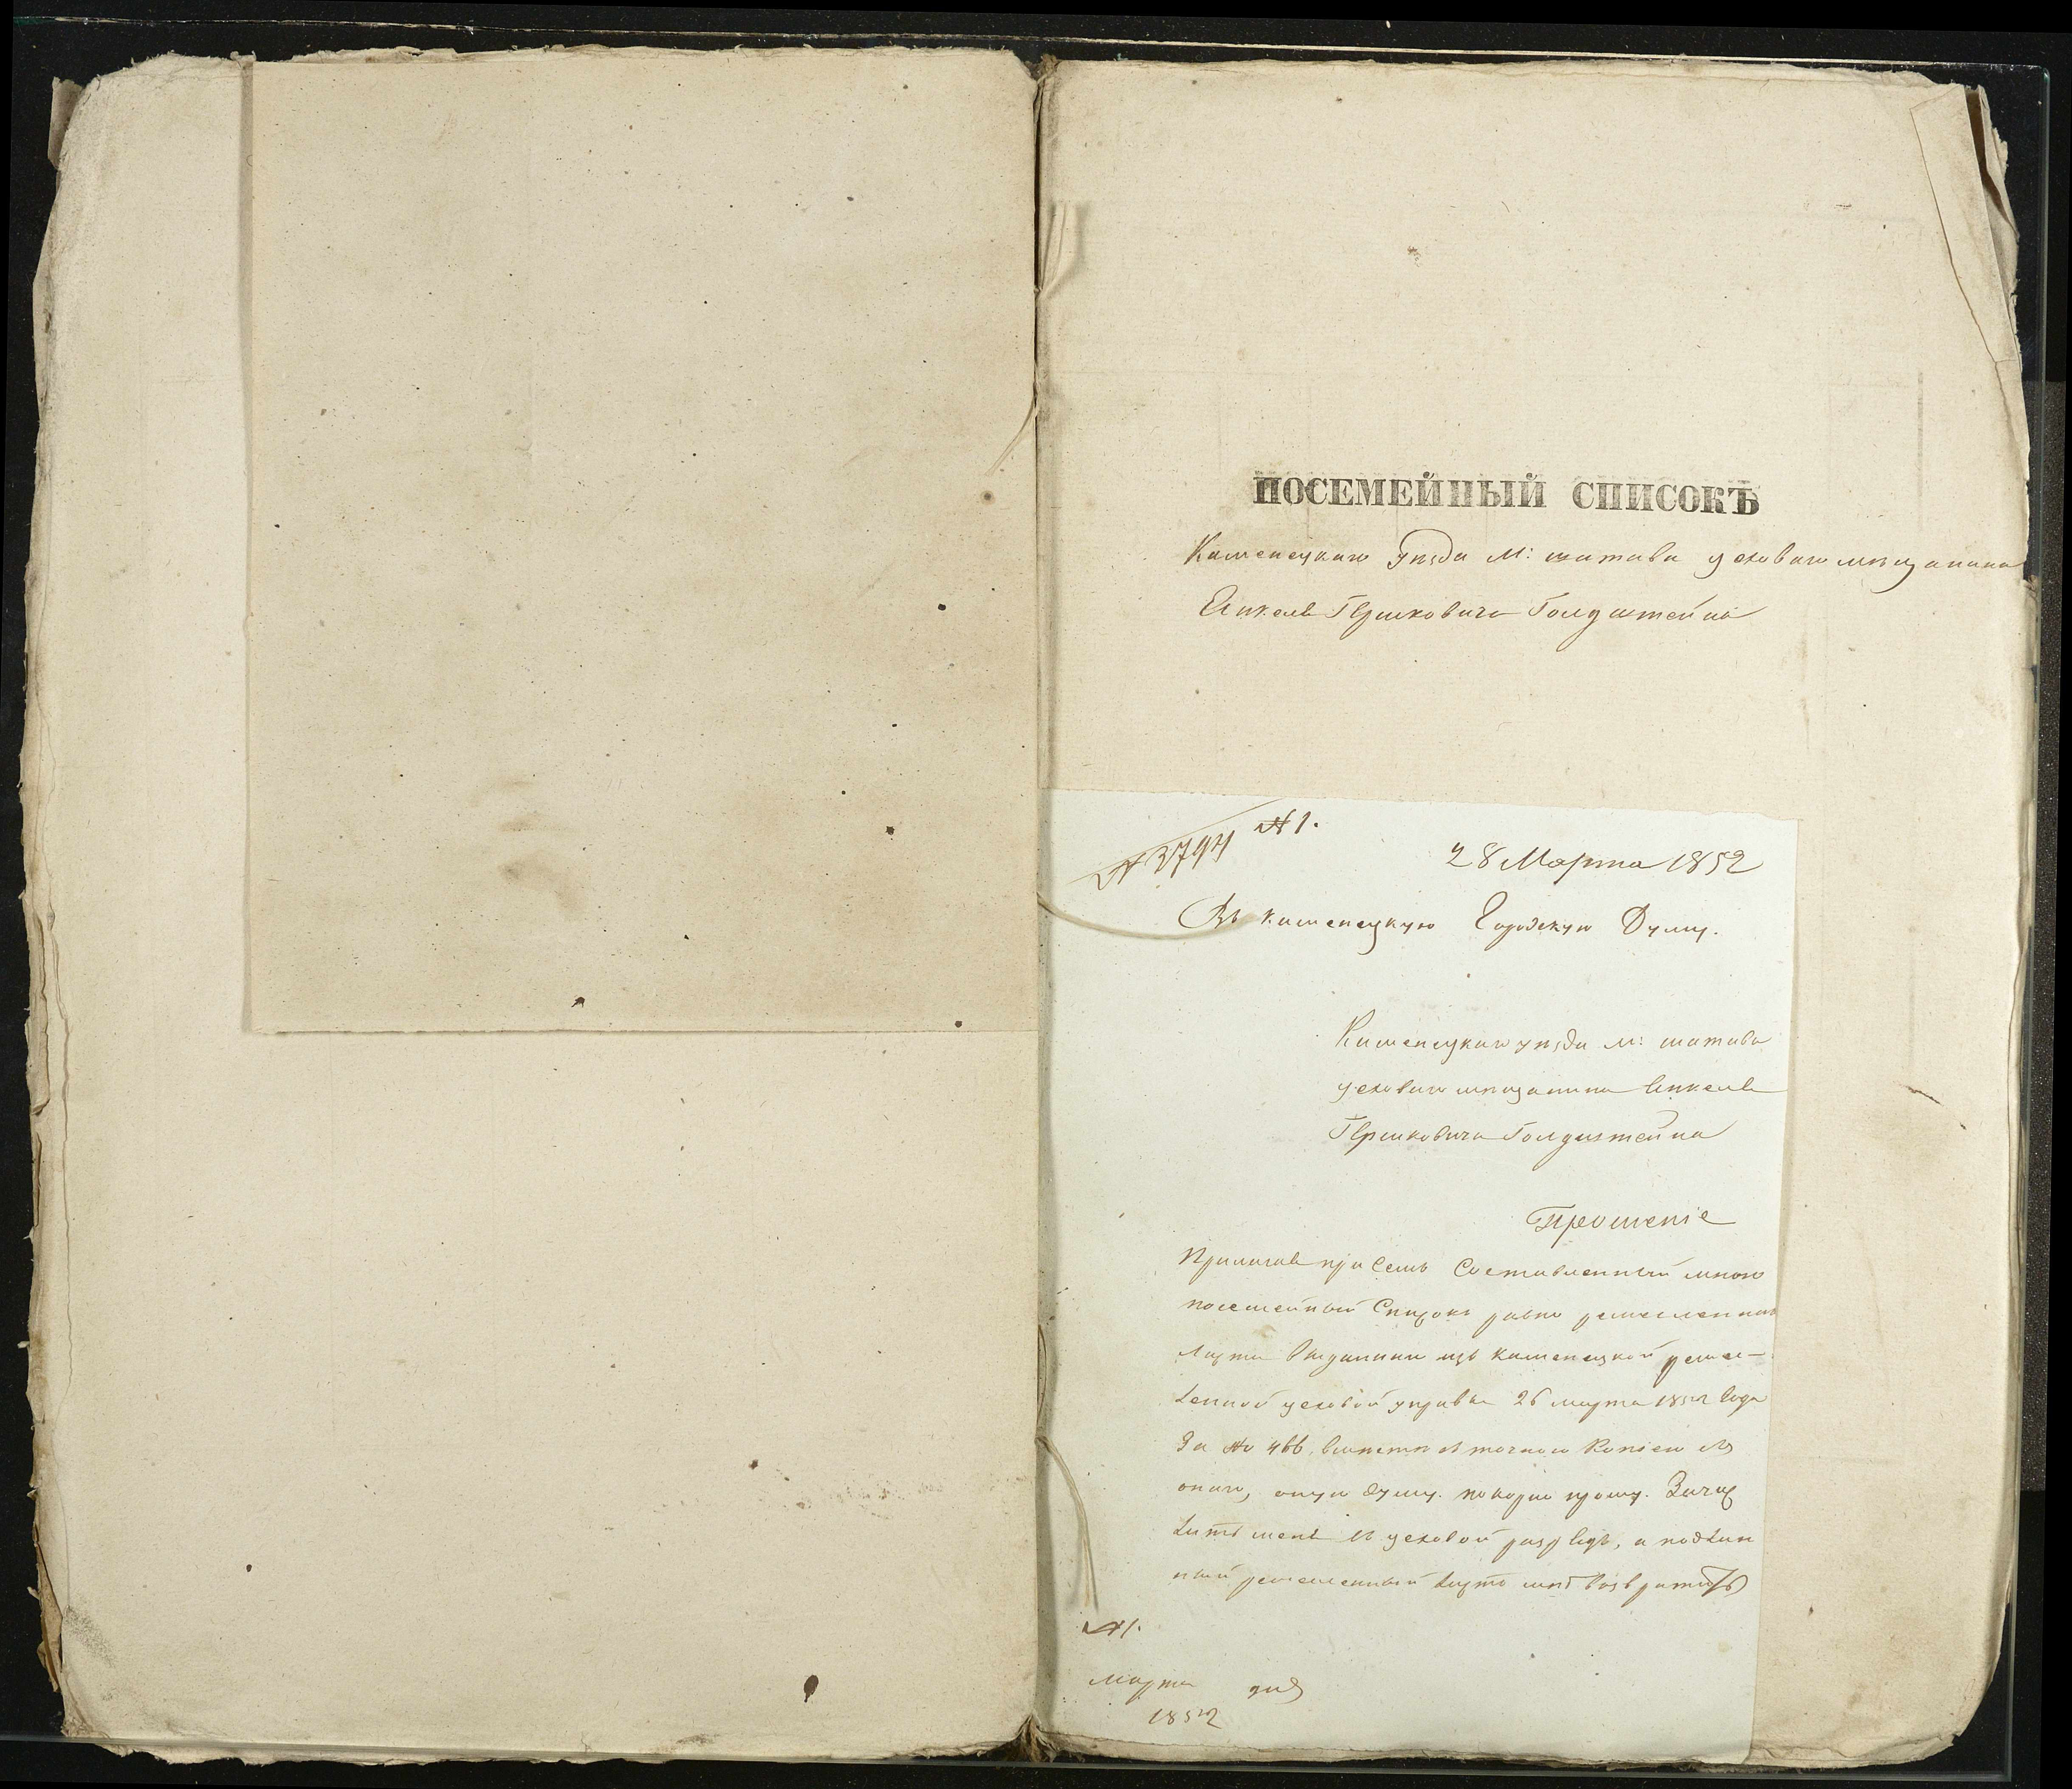 ПОСЕМЕЙНЫЙ СПИСОКЪ
Каменецкаго уѣзда М: шатава цеховаго мѣщанина
Янкеля Гершковича Голдштейна
№ 1.
№ 3794
28 Марта 1852
Въ каменецкую Городскую Думу.
Каменецкаго уѣзда м: шатава
цеховаго мѣщанина Янкеля
Гершковича Голдштейна
Прошеніе
Прилагая при Семъ Составленный мною
посемейный Списокъ равно ремесленный
Листъ выданный изъ каменецкой ремес-
ленной цеховой управы 26 марта 1852 года
За № 466, вместѣ съ точною Копіею съ
онаго, оную думу. покорно прошу. Зачис
лить меня въ цеховой разрядъ, а подлин
ный ремесленный листъ мнѣ возвратить
№ 1.
марта дня
1852